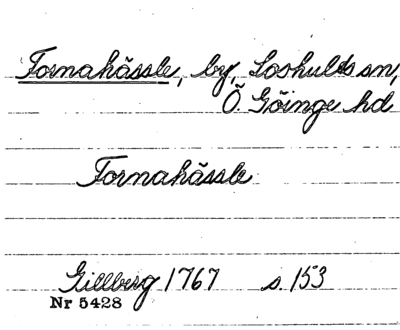 Tornahässle, by, Loshults sn,
Ö. Göinge hd
Tornahässle
Gillberg 1767 s. 153
Nr 5428